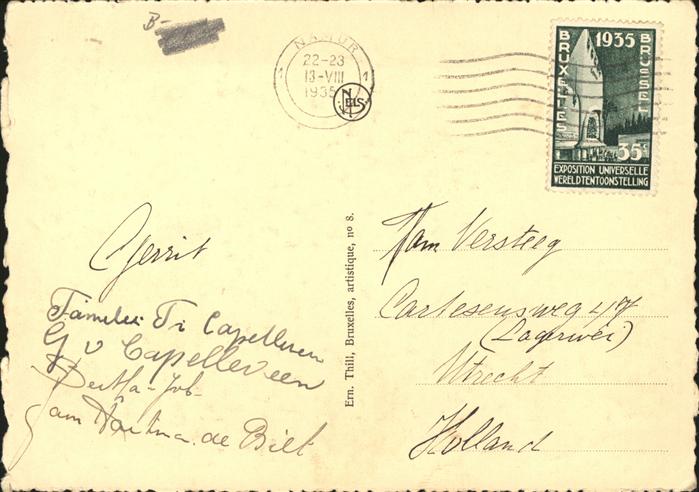 B-
NAMUR
22-23
13-VIII
1935
1
NELS
BRUXELLES
1935
BRUSSEL
35c
EXPOSITION UNIVERSELLE
WERELDTENTOONSTELLING
Gerrit
Familie Tr Capelleveen
G v Capelleveen
Bertha - Job -
de Bilt
Ern. Thill, Bruxelles, artistique, no 8.
Fam Versteeg
Cartesensweg 47
(Lagerwei)
Utrecht
Holland